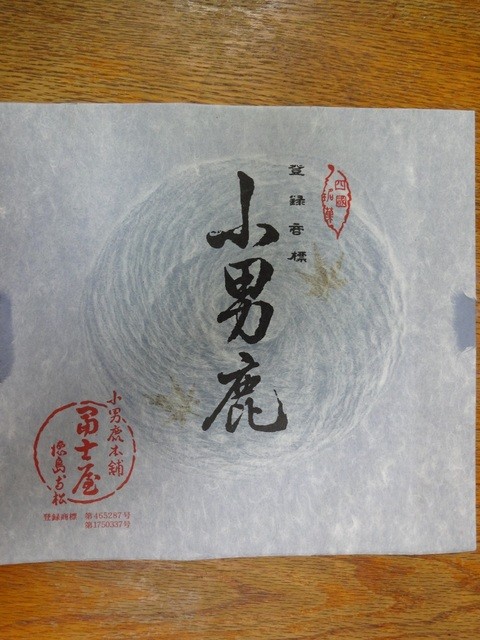 登録商標
小男鹿
小男鹿本舗
冨士屋
徳島
登録商標 第465287号
第1750337号